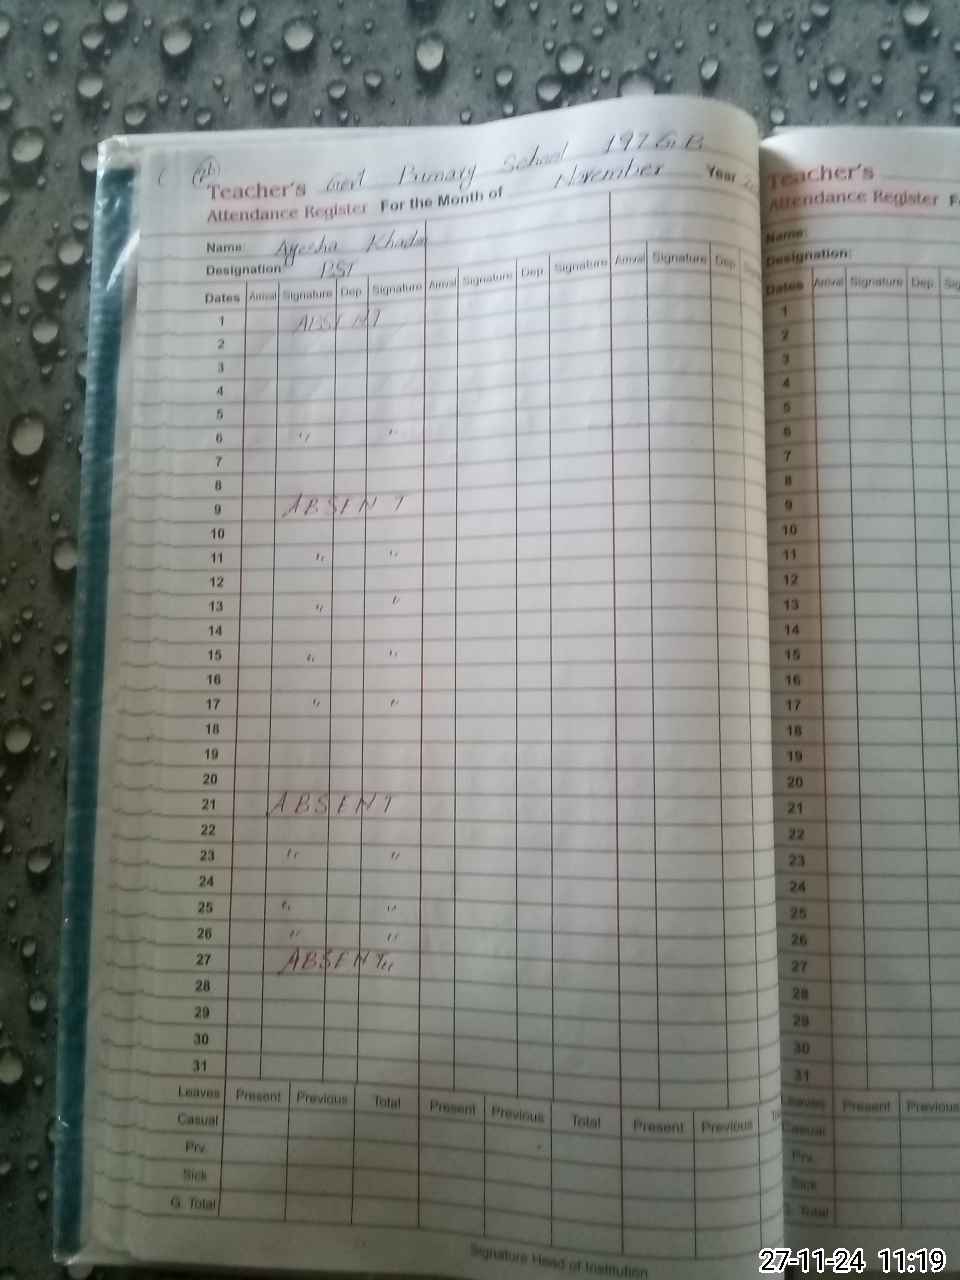 Teacher's Govt Primary School 197 G.B
Attendance Register For the Month of November Year
Name: Ayesha
Designation: PST
Dates Arrival Signature Dep. Signature Arrival Signature Dep. Signature Arrival Signature Dep.
1 ABSENT
2
3
4
5
6 " "
7
8
9 ABSENT
10
11 " "
12
13 " "
14
15 " "
16
17 " "
18
19
20
21 ABSENT
22
23 " "
24
25 " "
26 " "
27 ABSENT "
28
29
30
31
Leaves Present Previous Total Present Previous Total Present Previous
Casual
Prv.
Sick
G. Total
Signature Head of Institution
Teacher's
Attendance Register
Name:
Designation:
Dates Arrival Signature Dep.
1
2
3
4
5
6
7
8
9
10
11
12
13
14
15
16
17
18
19
20
21
22
23
24
25
26
27
28
29
30
31
Leaves Present Previous
Casual
Prv.
Sick
G. Total
27-11-24 11:19